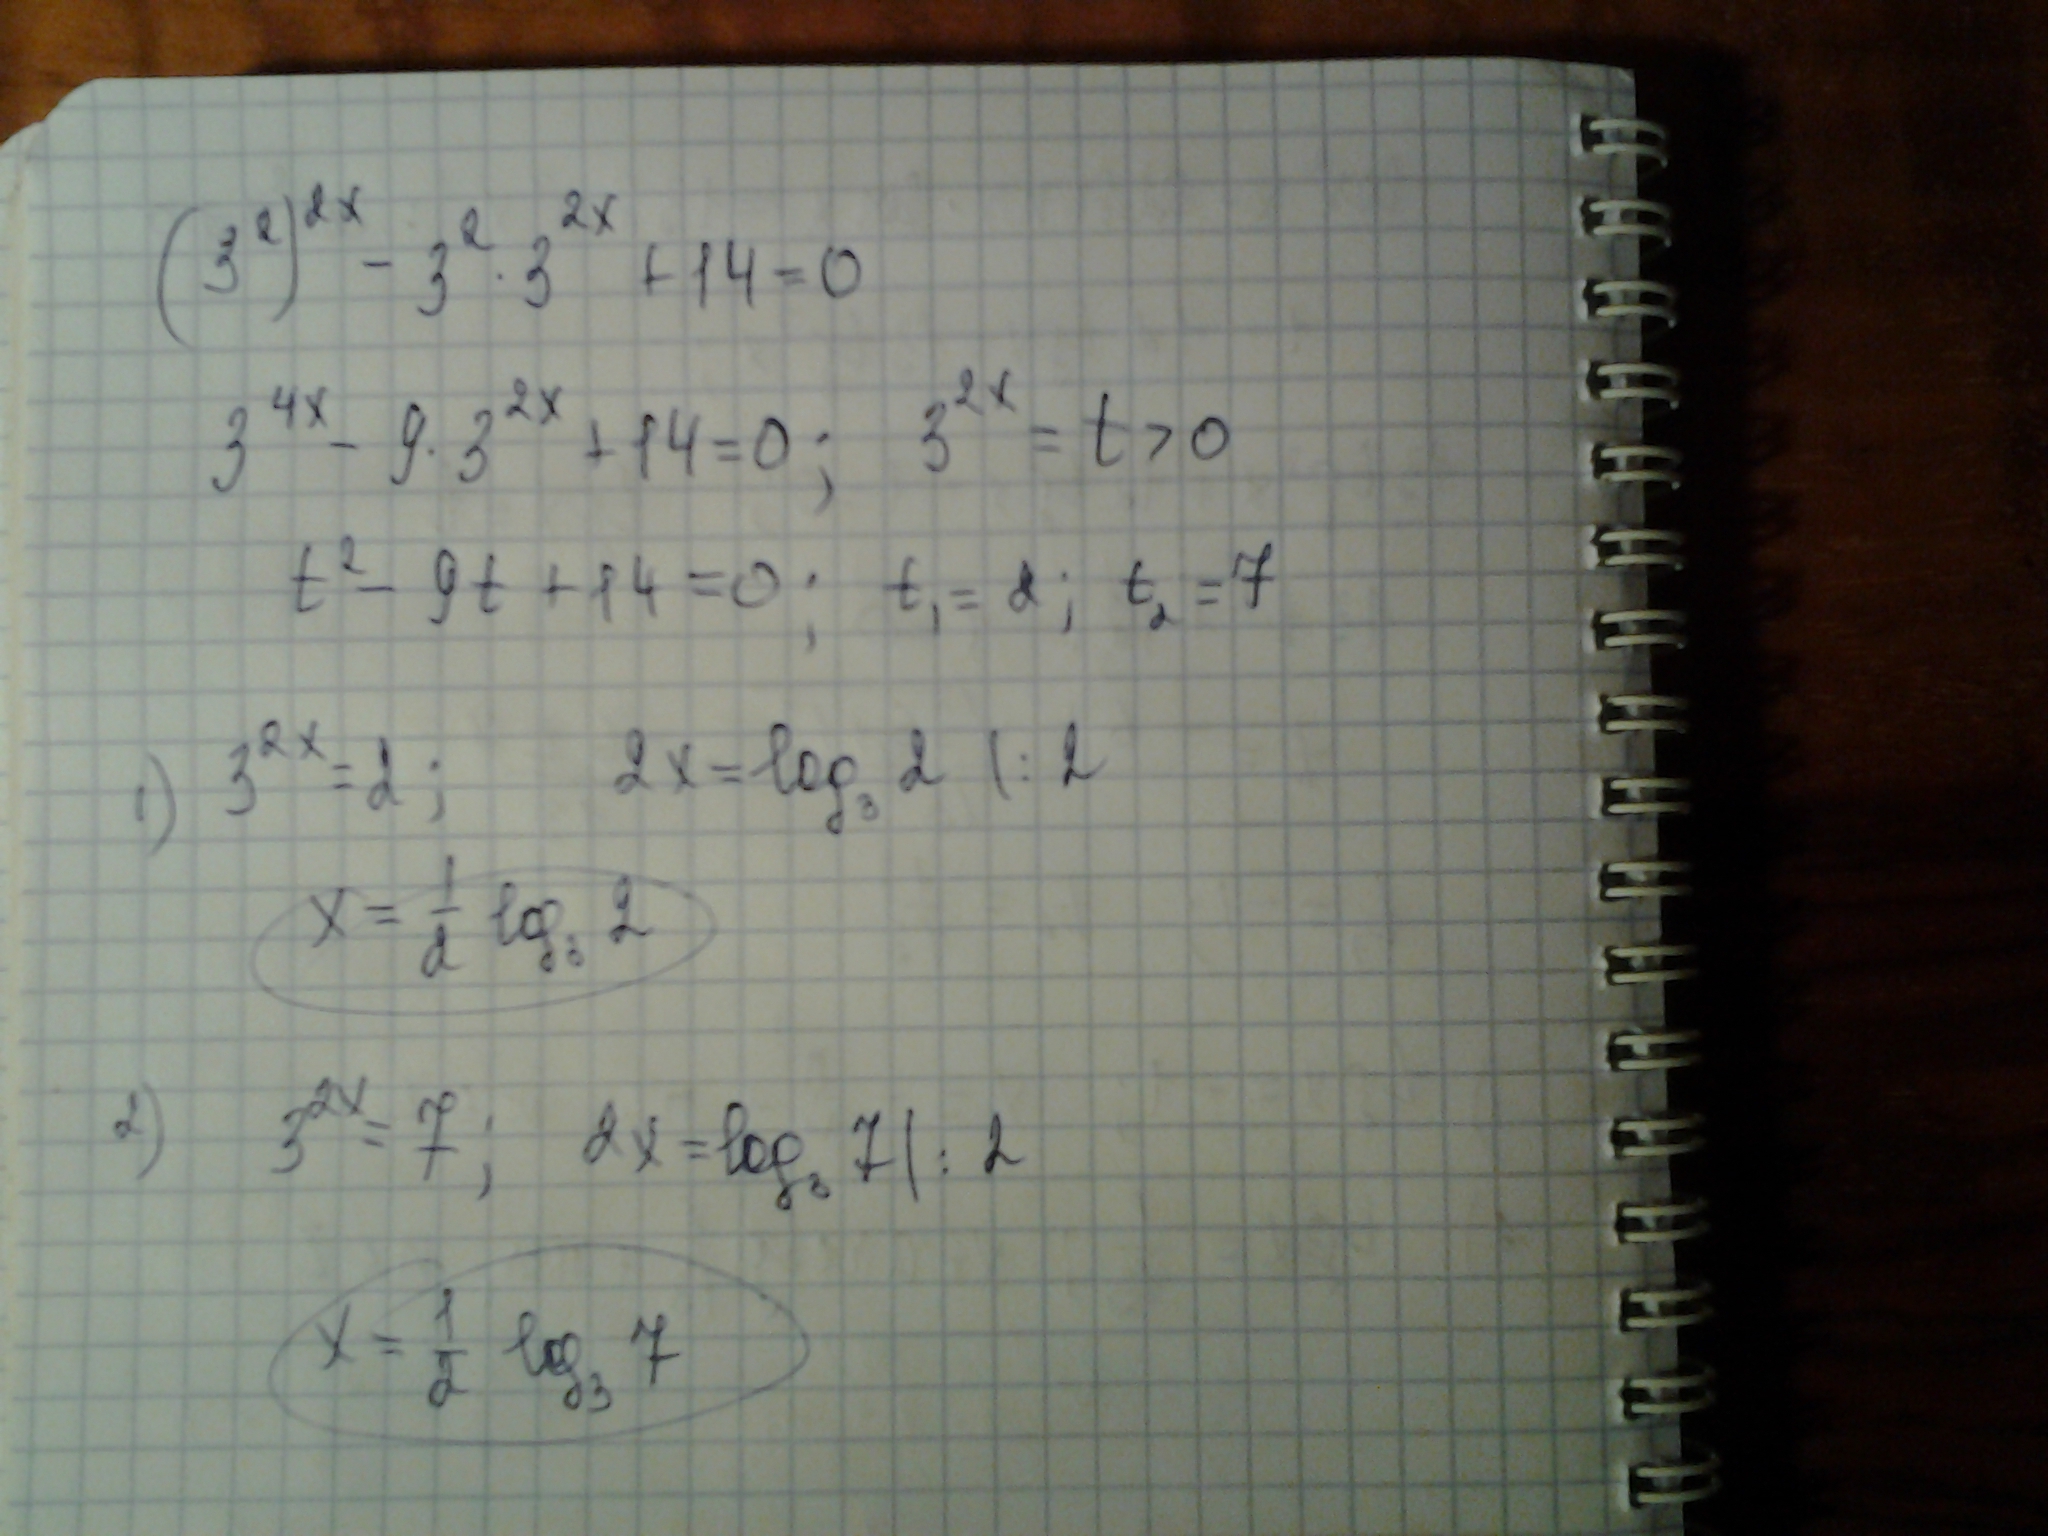 (3²)²ˣ - 3² · 3²ˣ + 14 = 0
3⁴ˣ - 9 · 3²ˣ + 14 = 0; 3²ˣ = t > 0
t² - 9t + 14 = 0; t₁ = 2; t₂ = 7
1) 3²ˣ = 2; 2x = log₃ 2 |: 2
x = 1/2 log₃ 2
2) 3²ˣ = 7; 2x = log₃ 7 |: 2
x = 1/2 log₃ 7